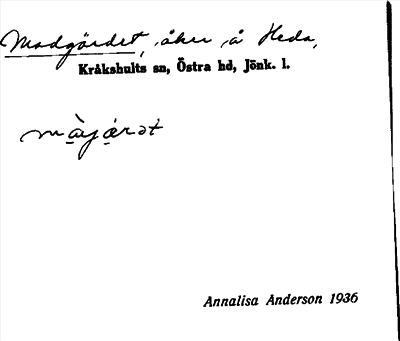 Madgärdet, åker å Heda,
Kråkshults sn, Östra hd, Jönk. l.
màjǽrət
Annalisa Anderson 1936